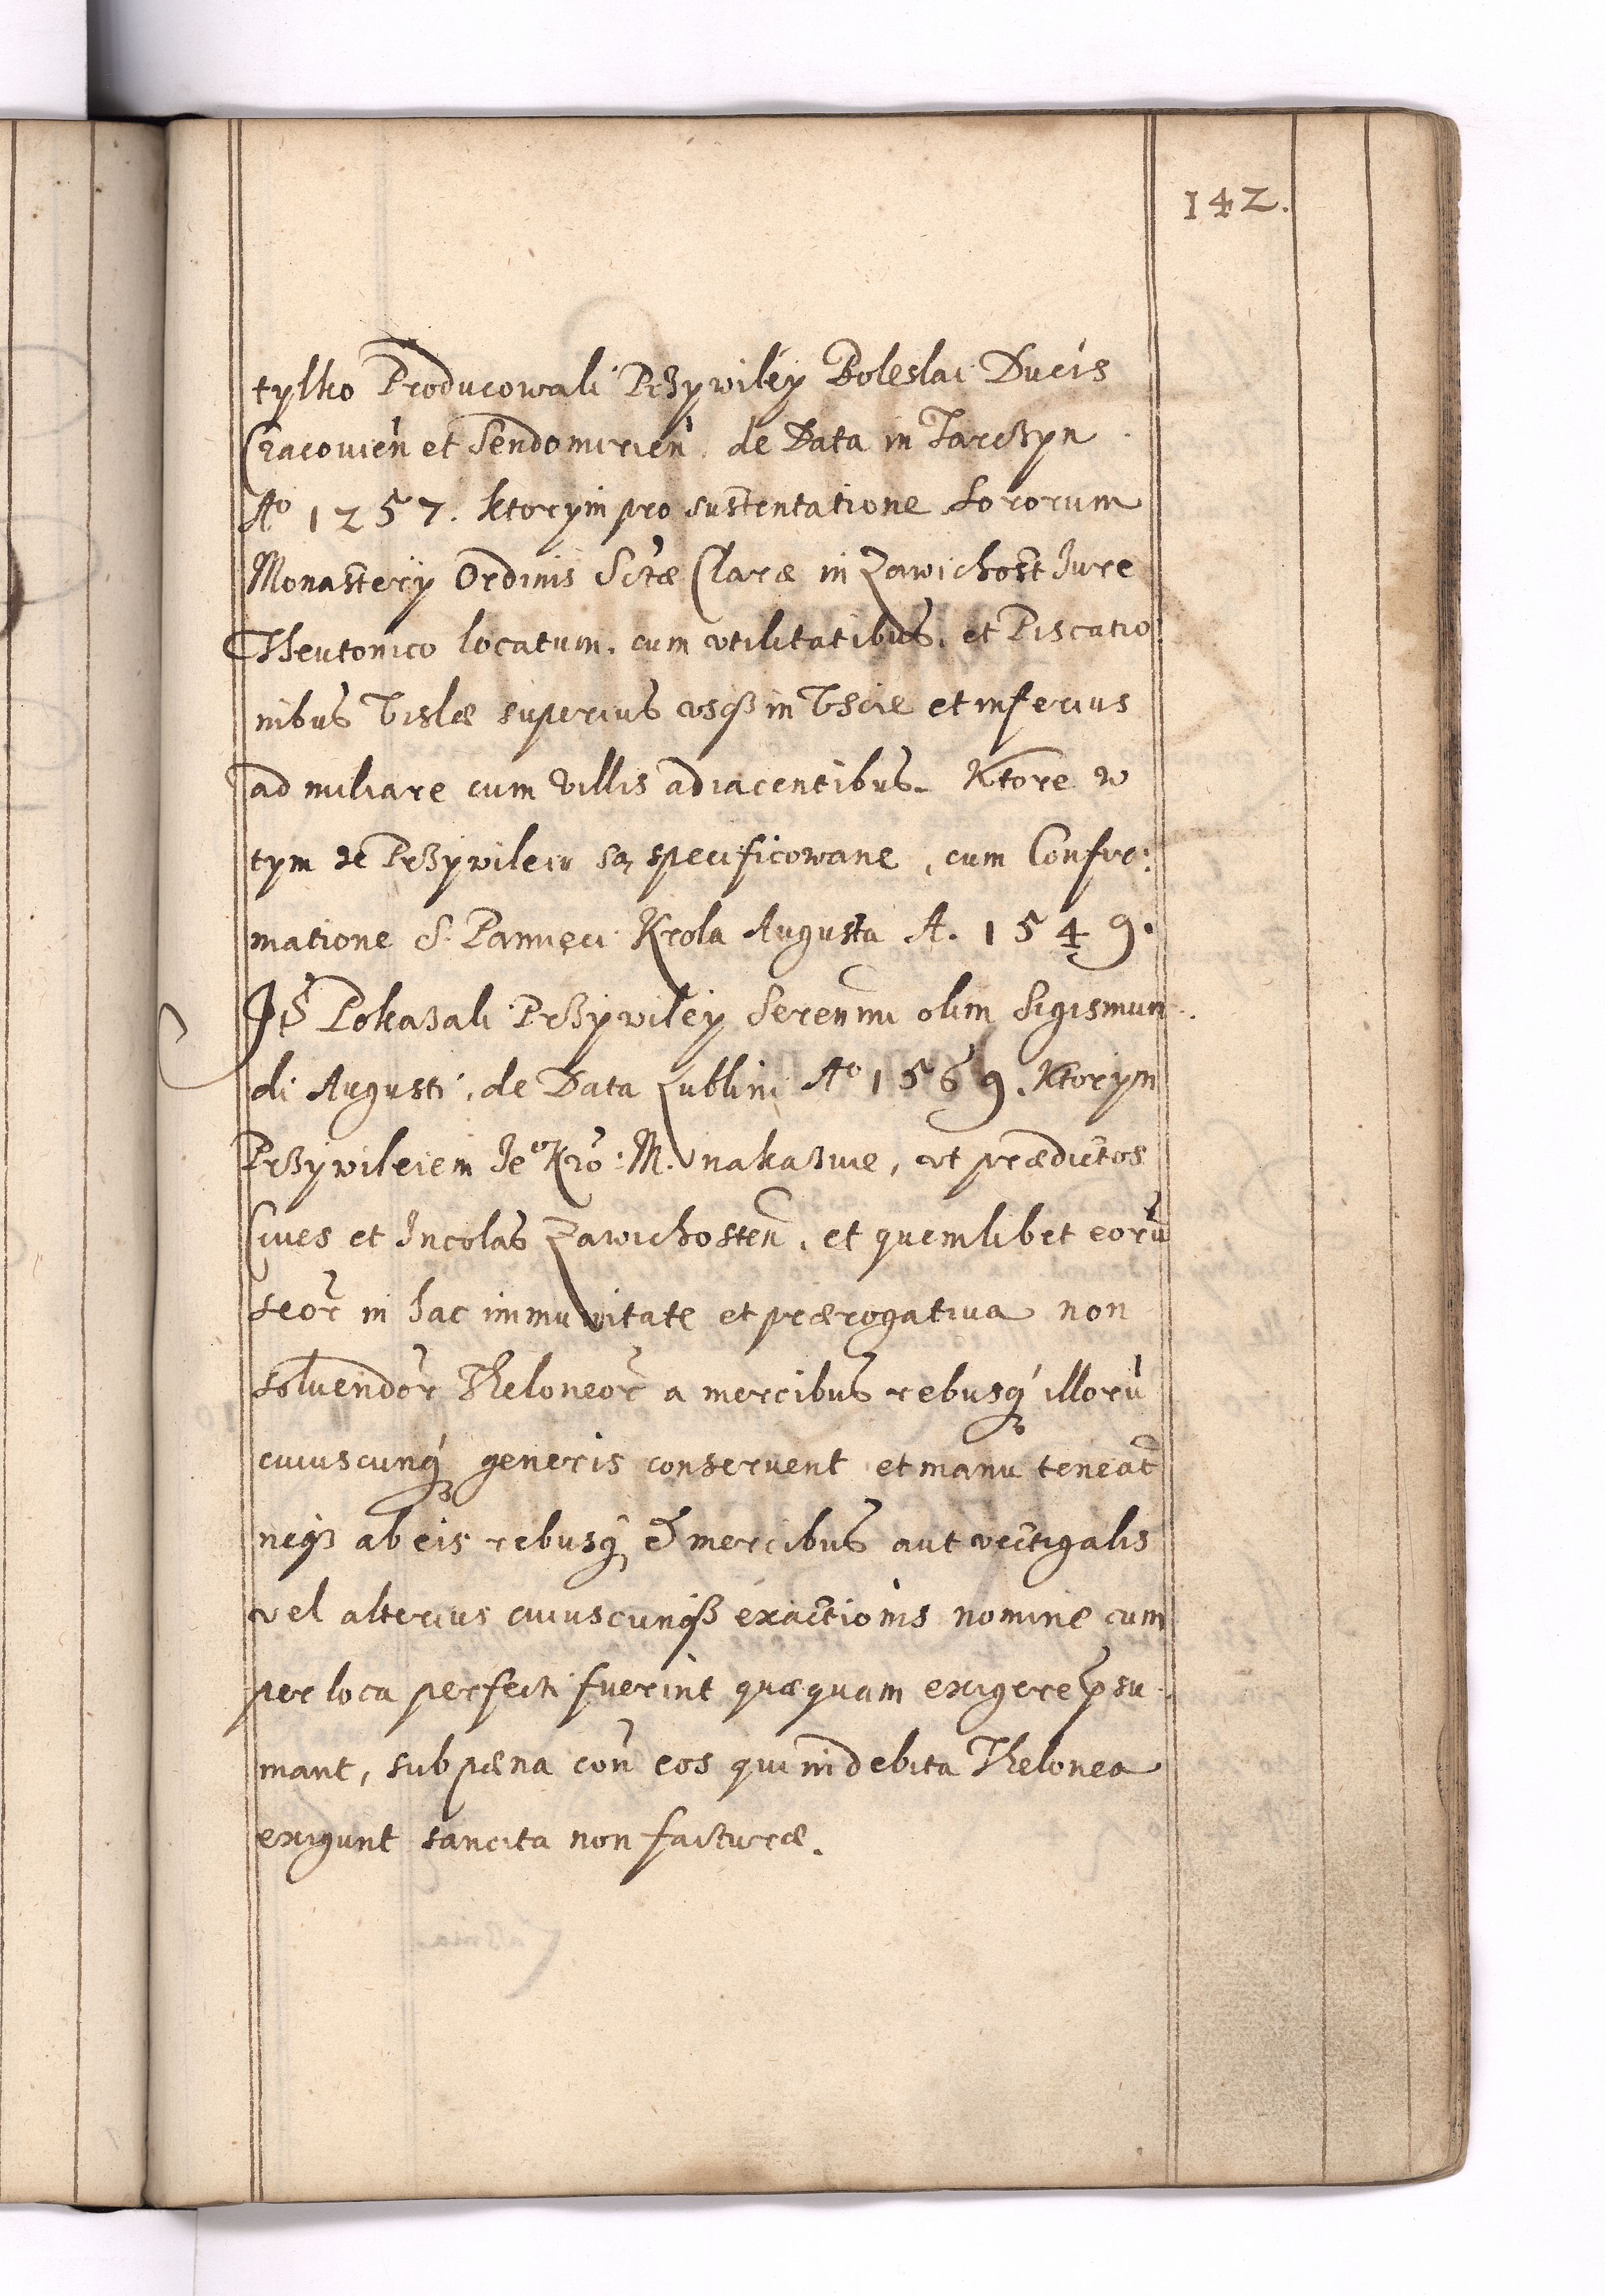 142.
tylko Producowali Przywiley Boleslai Ducis
Cracouien̄ et Sendomirien̄. de Data in Tarczyn
Aº 1257. ktorym pro sustentatione Sororum
Monastery Ordinis Sctæ Claræ in Zawichost Jure
Theutonico locatum. cum vtilitatibus. et Piscatio
nibus Vislæ superius vsqß in Vscie et inferius
ad miliare cum Villis adiacentibus. Ktore w
tym ze Przywileiu są specificowane, cum Confir:
matione S. Pamięci Krola Augusta A. 1549.
Jṡ Pokazali Przywiley Serenmi olim Sigismun
di Augusti, de Data Lublini Aº 1569. Ktorym
Przywileiem Jeº Kro: M. nakazuie, vt prædictos
Ciues et Incolas Zawichosten̄. et quemlibet eorū
seor̃ in hac immunitate et prærogatiua non
soluendor̃ Theloneor̃ a mercibus rebusq́ illorū
cuiuscunq́ generis conseruent et manu teneāt
neqß ab eis rebusq́ & mercibus aut vectigalis
vel alterius cuiuscunqß exactionis nomine cum
per loca perfecti fuerint quæquam exigere p̃su
mant, sub pæna con̄ eos qui indebita Thelonea
exigunt sancita non facturæ.